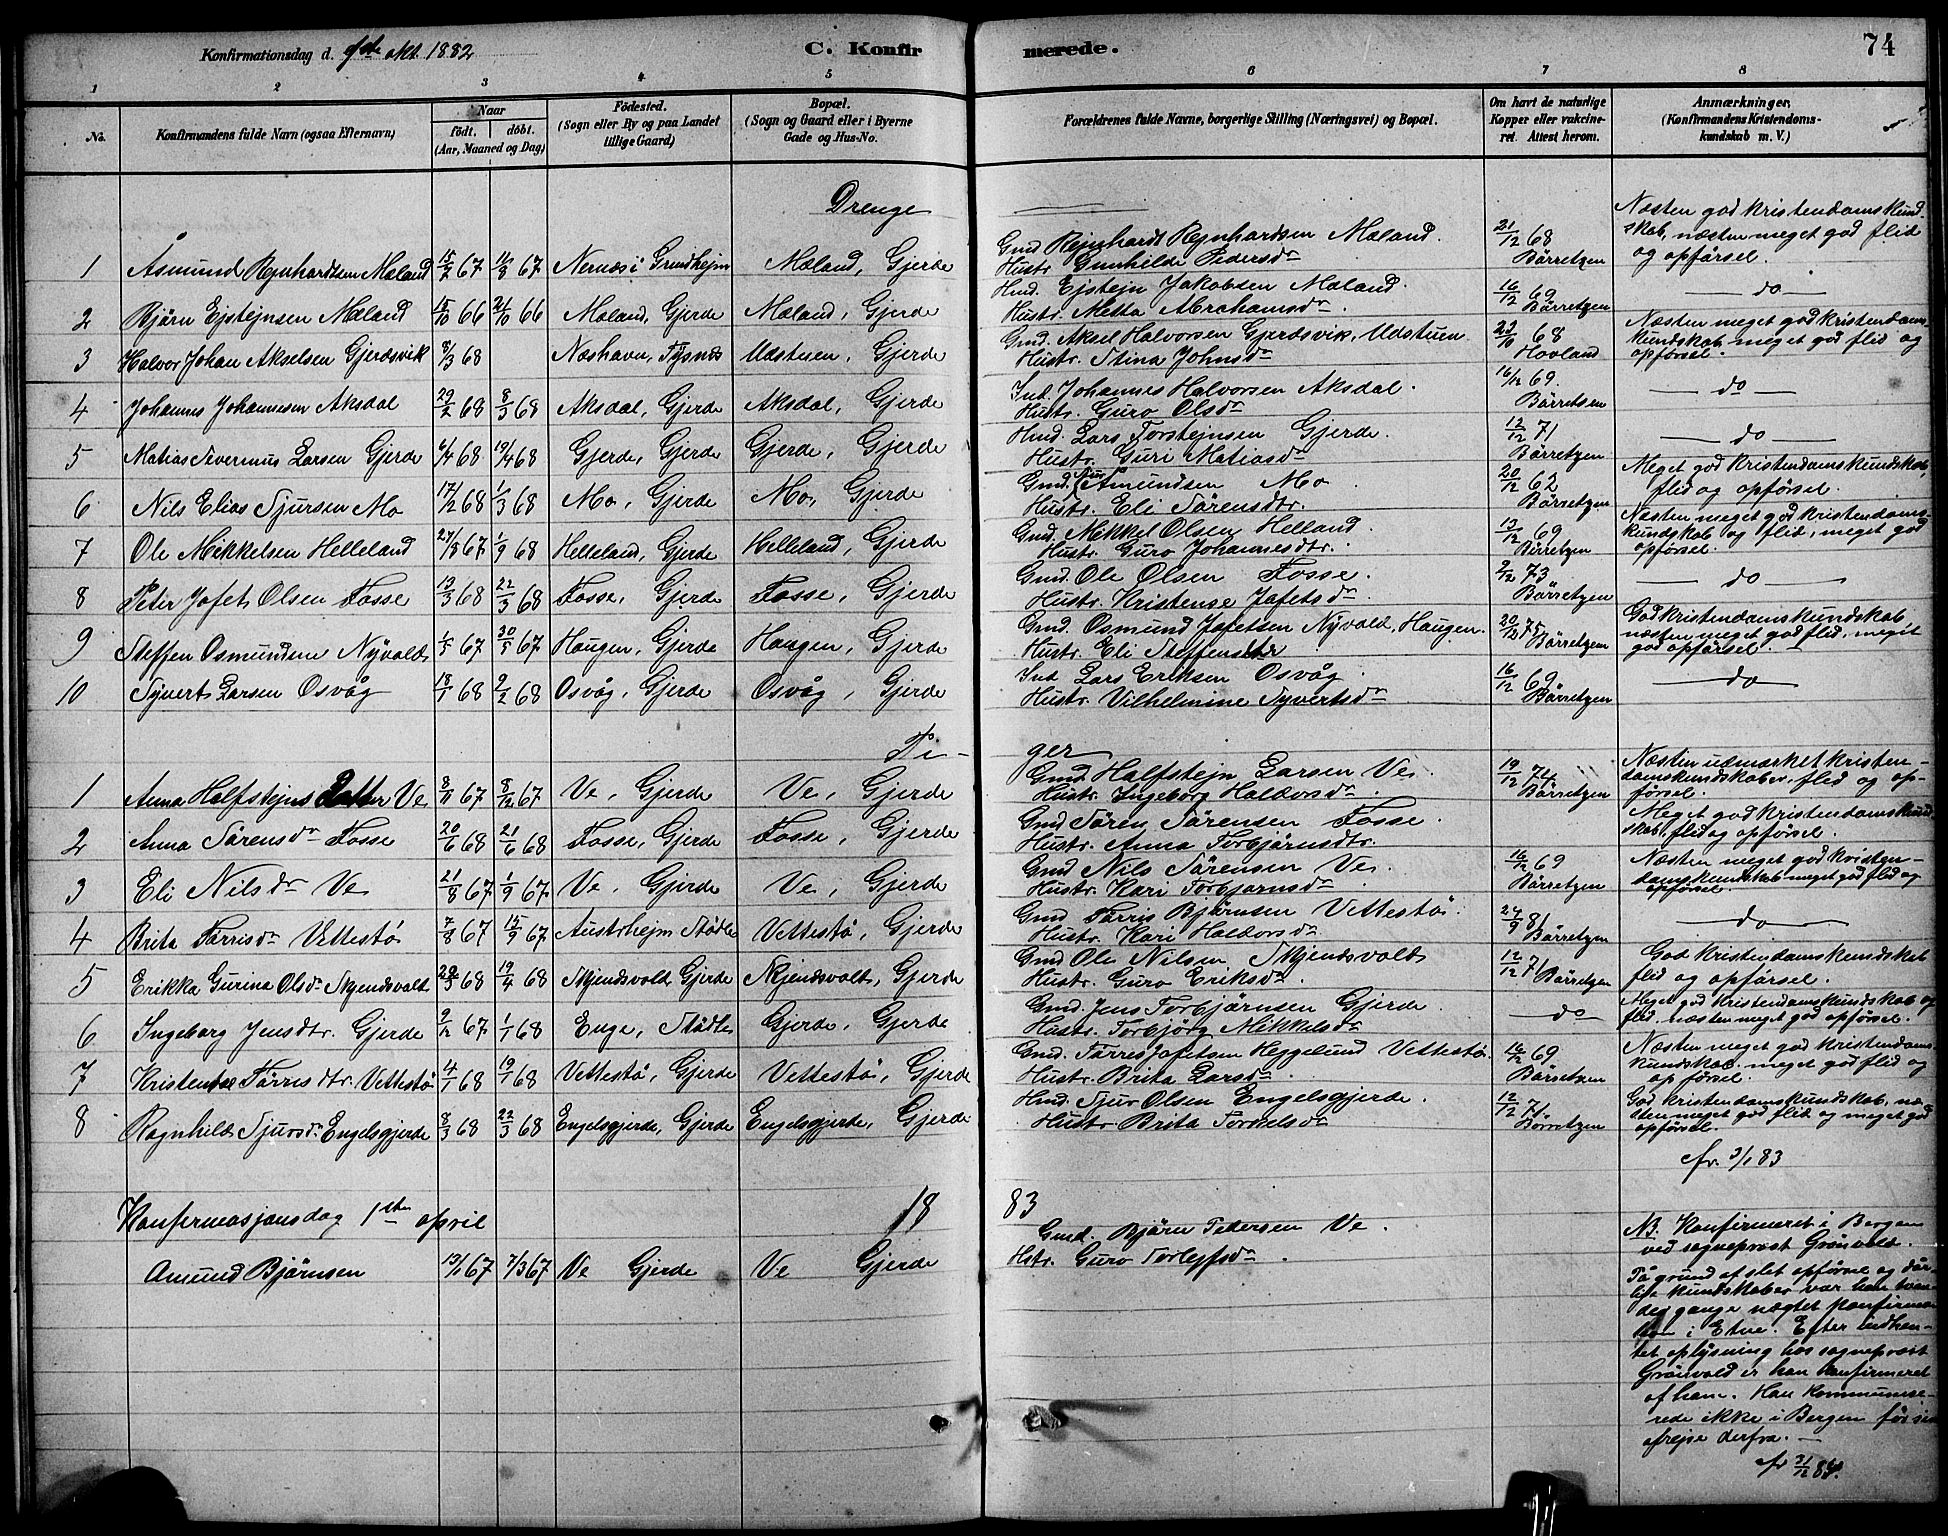 Konfirmationsdag d. 8de okt. 1882 C. Konfirmerede. 74
1 2 3 4 5 6 7 8
No. Konfirmandens fulde Navn (ogsaa Efternavn) Naar födt. döbt. (Aar, Maaned og Dag) Födested. (Sogn eller By og paa Landet tillige Gaard) Bopæl. (Sogn og Gaard eller i Byerne Gade og Hus-No. Forældrenes fulde Navne, borgerlige Stilling (Næringsvei) og Bopæl. Om havt de naturlige Kopper eller vaksineret. Attest herom. Anmærkninger, (Konfirmandens Kristendomskundskab m. V.)
Drenge
1 Åsmund Rejnhardtsen Mæland 15/2 67 11/8 67 Nernæs i Grindhejm Mæland, Gjerde Gmd. Rejnhardt Rejnhardsen Mæland. Hustr. Gunhilde Pedersdr 21/12 68 Börretzen Næsten god kristendomskundskab, næsten meget god flid og opförsel.
2 Björn Ejstejnsen Mæland 15/10 66 21/10 66 Mæland, Gjerde Mæland, Gjerde Hmd. Ejstejn Jakobsen Mæland. Hustr. Metta Abrahamsdr. 16/12 69 Börretzen do
3 Halvor Johan Akselsen Gjerdsvik 8/3 68 Næshavn, Tysnæs Udstuen, Gjerde Gmd. Aksel Halvorsen Gjerdsvik, Udstuen Hustr. Stina Johnsdr 23/10 68 Hovland Næsten meget god kristendomskundskab, meget god flid og opförsel.
4 Johannes Johannesen Aksdal 29/2 68 8/3 68 Aksdal, Gjerde Aksdal, Gjerde Ind. Johannes Halvorsen Aksdal. Hustr. Guro Olsdr 16/12 69. Börretsen do
5 Matias Severinus Larsen Gjerde 6/4 68 19/4 68 Gjerde, Gjerde Gjerde, Gjerde Hmd. Lars Torstejnsen Gjerde. Hustr. Guri Matiasdr 12/12 71 Börretzen do
6 Nils Elias Sjursen Mo 17/2 68 1/3 68 Mo, Gjerde Mo, Gjerde Gmd. Sjur Åmundsen Mo Hustr. Eli Sörensdtr. 20/12 62 Börretzen Meget god kristendomskundskab, flid og opförsel.
7 Ole Mikkelsen Helleland 27/8 67 1/9 68 Helleland, Gjerde Helleland, Gjerde Gmd. Mikkel Olsen Helland. Hustr. Guro Johannesdtr. 13/12 69 Börretzen Næsten meget god kristendomskundskab og flid, meget god opförsel.
8 Peter Jafet Olsen Fosse 13/3 68 22/3 68 Fosse, Gjerde Fosse, Gjerde Gmd. Ole Olsen Fosse. Hustr. Kristense Jafetsdr 2/12 73 Börretzen do
9 Steffen Osmundsen Nyvold 1/5 67 30/5 67 Haugen, Gjerde Haugen, Gjerde Gmd. Osmund Jafetsen Nyvold, Haugen. Hustr. Eli Steffensdtr 20/12 75 Börretzen God kristendomskundskab næsten meget god flid, meget god opförsel.
10 Syvert Larsen Osvåg 18/1 68 2/2 68 Osvåg, Gjerde Osvåg, Gjerde Ind. Lars Eriksen Osvåg Hustr. Vilhelmine Syvertsdr 16/12 69 Börretzen do
Piger
1 Anna Halfstejns Datter Ve 8/11 67 8/12 67 Ve, Gjerde Ve, Gjerde Gmd. Halfstejn Larsen Ve. Hustr. Ingeborg Haldorsdr. 19/12 74 Börretzen Næsten udmærket kristendomskundskaber, flid og opförsel.
2 Anna Sörensdr Fosse 20/6 68 21/6 68 Fosse, Gjerde Fosse, Gjerde Gmd. Sören Sörensen Fosse. Hustr. Anna Torbjörnsdtr. Meget god kristendomskundskab, flid og opförsel.
3 Eli Nilsdr Ve 21/8 67 1/9 67 Ve, Gjerde Ve, Gjerde Gmd Nils Sörensen Ve. Hustr. Kari Torbjörnsdr 16/12 69 Börretzen Næsten meget god kristendomskundskab meget god flid og opförsel.
4 Brita Törrisdr Vettestö 7/8 67 15/9 67 Austrhejm Stödle Vettestö, Gjerde Gmd Törris Björnsen Vettestö. Hustr. Kari Haldorsdr 24/9 81 Börretzen do
5 Erikka Gurina Olsdr Skjendsvolt 29/3 68 19/4 68 Skjendsvold, Gjerde Skjendsvolt, Gjerde Gmd Ole Nilsen Skjendsvold Hustr. Guro Eriksdr. 12/12 71 Börretzen God kristendomskundskab flid og opförsel.
6 Ingeborg Jensdtr. Gjerde 9/12 67 1/1 68 Enge, Stödle Gjerde, Gjerde Gmd. Jens Torbjörnsen Gjerde Hustr. Torbjörg Mikkelsdr do Meget god kristendomskundskab og flid, næsten meget god opförsel.
7 Kristense Törrisdtr. Vettestö 4/1 68 19/1 68 Vettestö, Gjerde Vettestö, Gjerde Gmd. Törres Jafetsen Heggelund Vettestö. Hustr. Brita Larsdr 16/12 69 Börretzen Næsten meget god kristendomskundskab. meget god flid og opförsel.
8 Ragnhild Sjursdr Engelsgjerde 8/3 68 22/3 68 Engelsgjerde, Gjerde Engelsgjerde, Gjerde Hmd. Sjur Olsen Engelsgjerde. Hustr Brita Torkelsdr 12/12 71 Börretzen God kristendomskundskab, næsten meget god flid og meget god opförsel.
afr. 3/1 83
Konfirmasjonsdag 1ste april 1883
Amund Björnsen 13/1 67 7/3 67 Ve Gjerde Ve Gjerde Gmd. Björn Pedersen Ve. Hstr. Guro Torlejfsdr.
NB. Konfirmeret i Bergen
ved sogneprost Grönvold.
På grund af slet opförsel og dår-
lige kundskaber var han tven-
de gange nægtet konfirma-
tion i Etne. Efter indhen-
tet oplysning hos sogneprost
Grönvold er han konfirmeret
af ham. Han kommunise-
rede ikke i Bergen för sin
afrejse derfra.
afr 31/12 84.